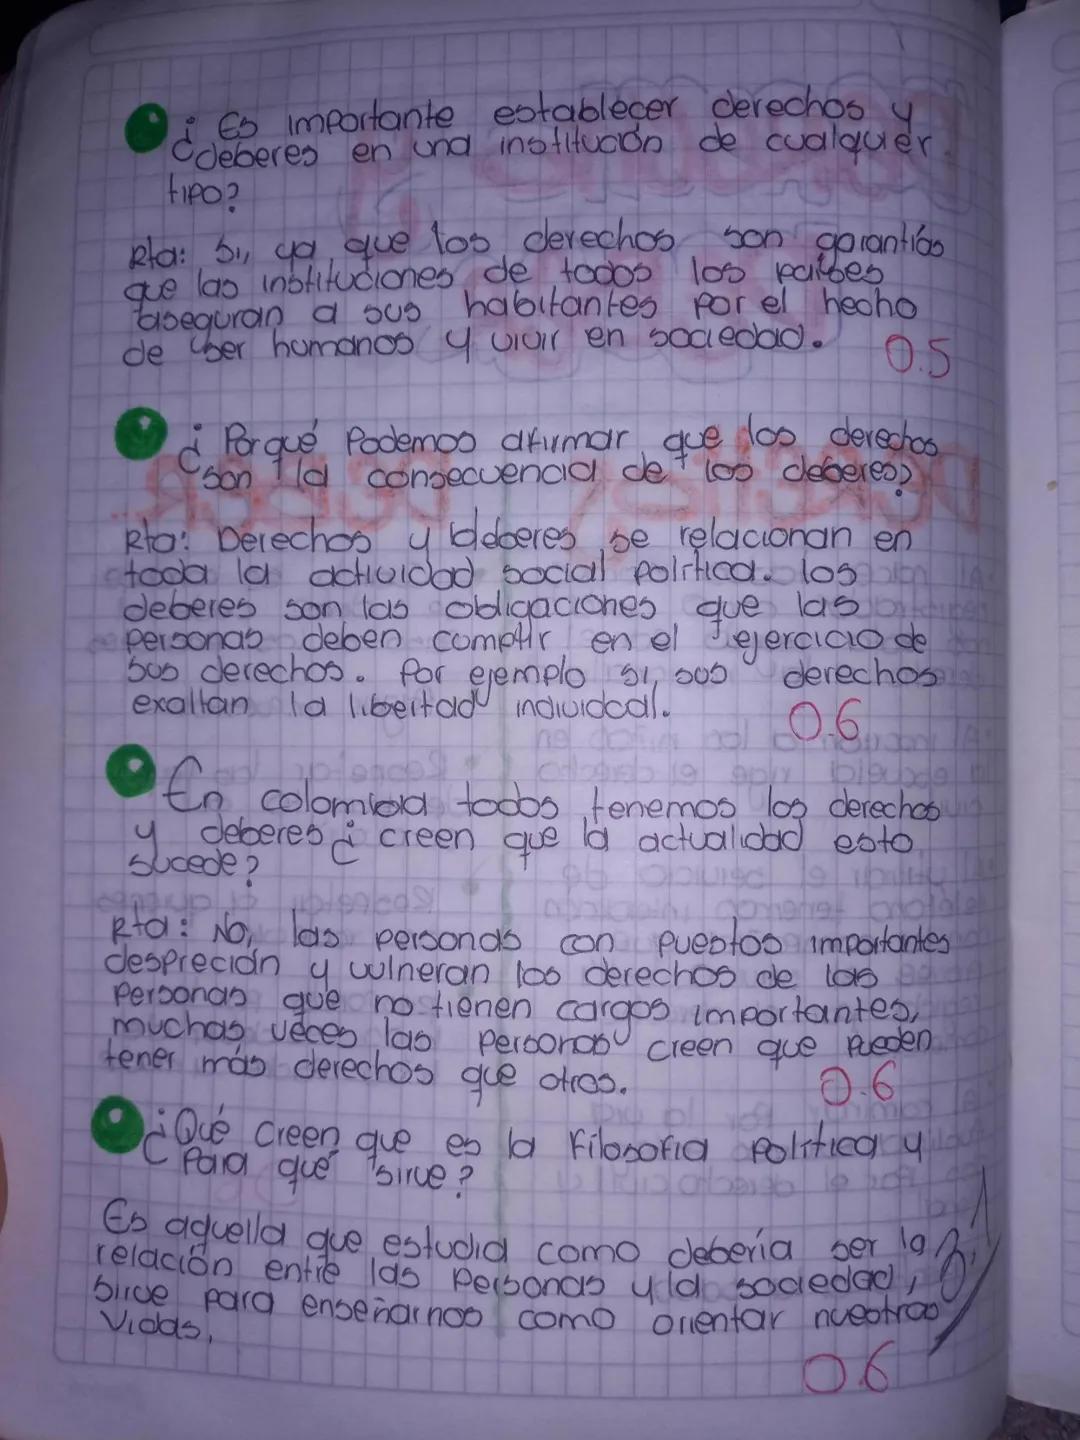 ¿Es importante establecer derechos y
deberes en una institución de cualquier
tipo?
Rta: Si, ya que los derechos son garantías
que las instituciones de todos los países
aseguran a sus habitantes por el hecho
de ser humanos y vivir en sociedad.
0.5
¿Porqué Podemos afirmar que los derechos
son la consecuencia de los deberes?
Rta: Derechos y deberes se relacionan en
toda la actividad social política. los
deberes son las obligaciones que las
personas deben cumplir en el ejercicio de
sus derechos. Por ejemplo si, sus derechos
exaltan la libertad individual.
0.6
En colombia todos tenemos los derechos
y deberes ¿creen que la actualidad esto
sucede?
Rta: No, las personas con puestos importantes
desprecian y vulneran los derechos de las
personas que no tienen cargos importantes,
muchas veces las personas creen que pueden
tener más derechos que otros.
0.6
¿Qué creen que es la Filosofia Politica y
Para qué sirve?
Es aquella que estudia como debería ser la
relación entre las personas y la sociedad,
sirve para enseñarnos como orientar nuestras
vidas.
0.6